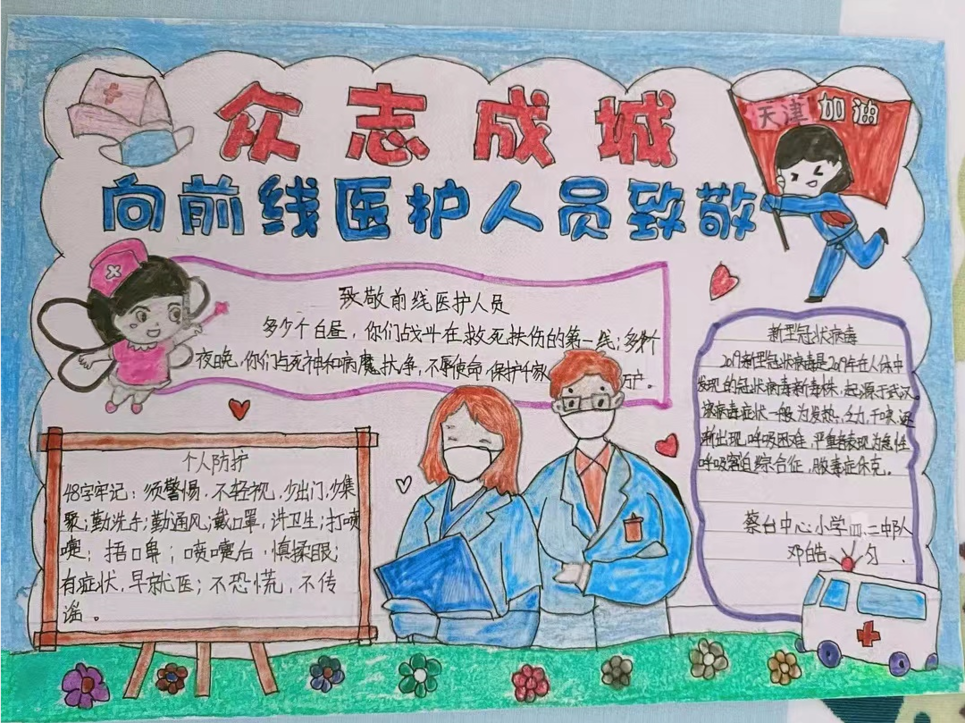 众志成城
向前线医护人员致敬
天津加油
致敬前线医护人员
多少个白昼,你们战斗在救死扶伤的第一线;多少个
夜晚,你们与死神和病魔抗争,不辱使命,保护千家 万户。
个人防护
48字牢记:须警惕,不轻视,少出门,少集
聚;勤洗手;勤通风;戴口罩,讲卫生;打喷
嚏;捂口鼻;喷嚏后,慎揉眼;
有症状,早就医;不恐慌,不传
谣。
新型冠状病毒
2019新型冠状病毒是2019年在人体中
发现的冠状病毒新毒株,起源于武汉。
该病毒症状一般为发热,乏力,干咳,逐
渐出现呼吸困难,严重者表现为急性
呼吸窘迫综合征,脓毒症休克。
蔡台中心小学四、二中队
邓皓匀